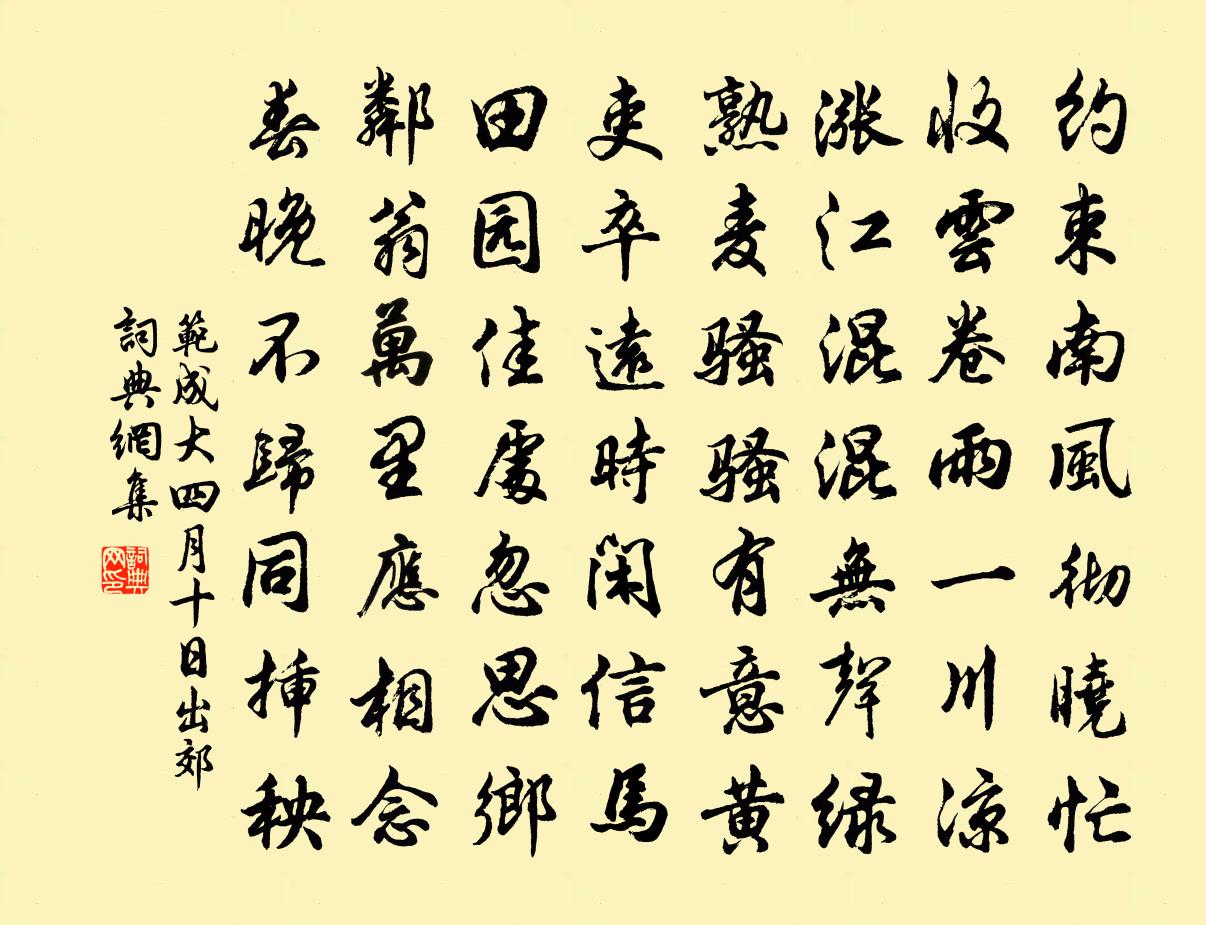 约束南風彻曉忙
收雲卷雨一川涼
涨江混混無聲绿
熟麦骚骚有意黄
吏卒遠時闲信馬
田园佳處忽思鄉
鄰翁萬里應相念
春晚不歸同插秧
範成大四月十日出郊
詞典網集
詞典网印